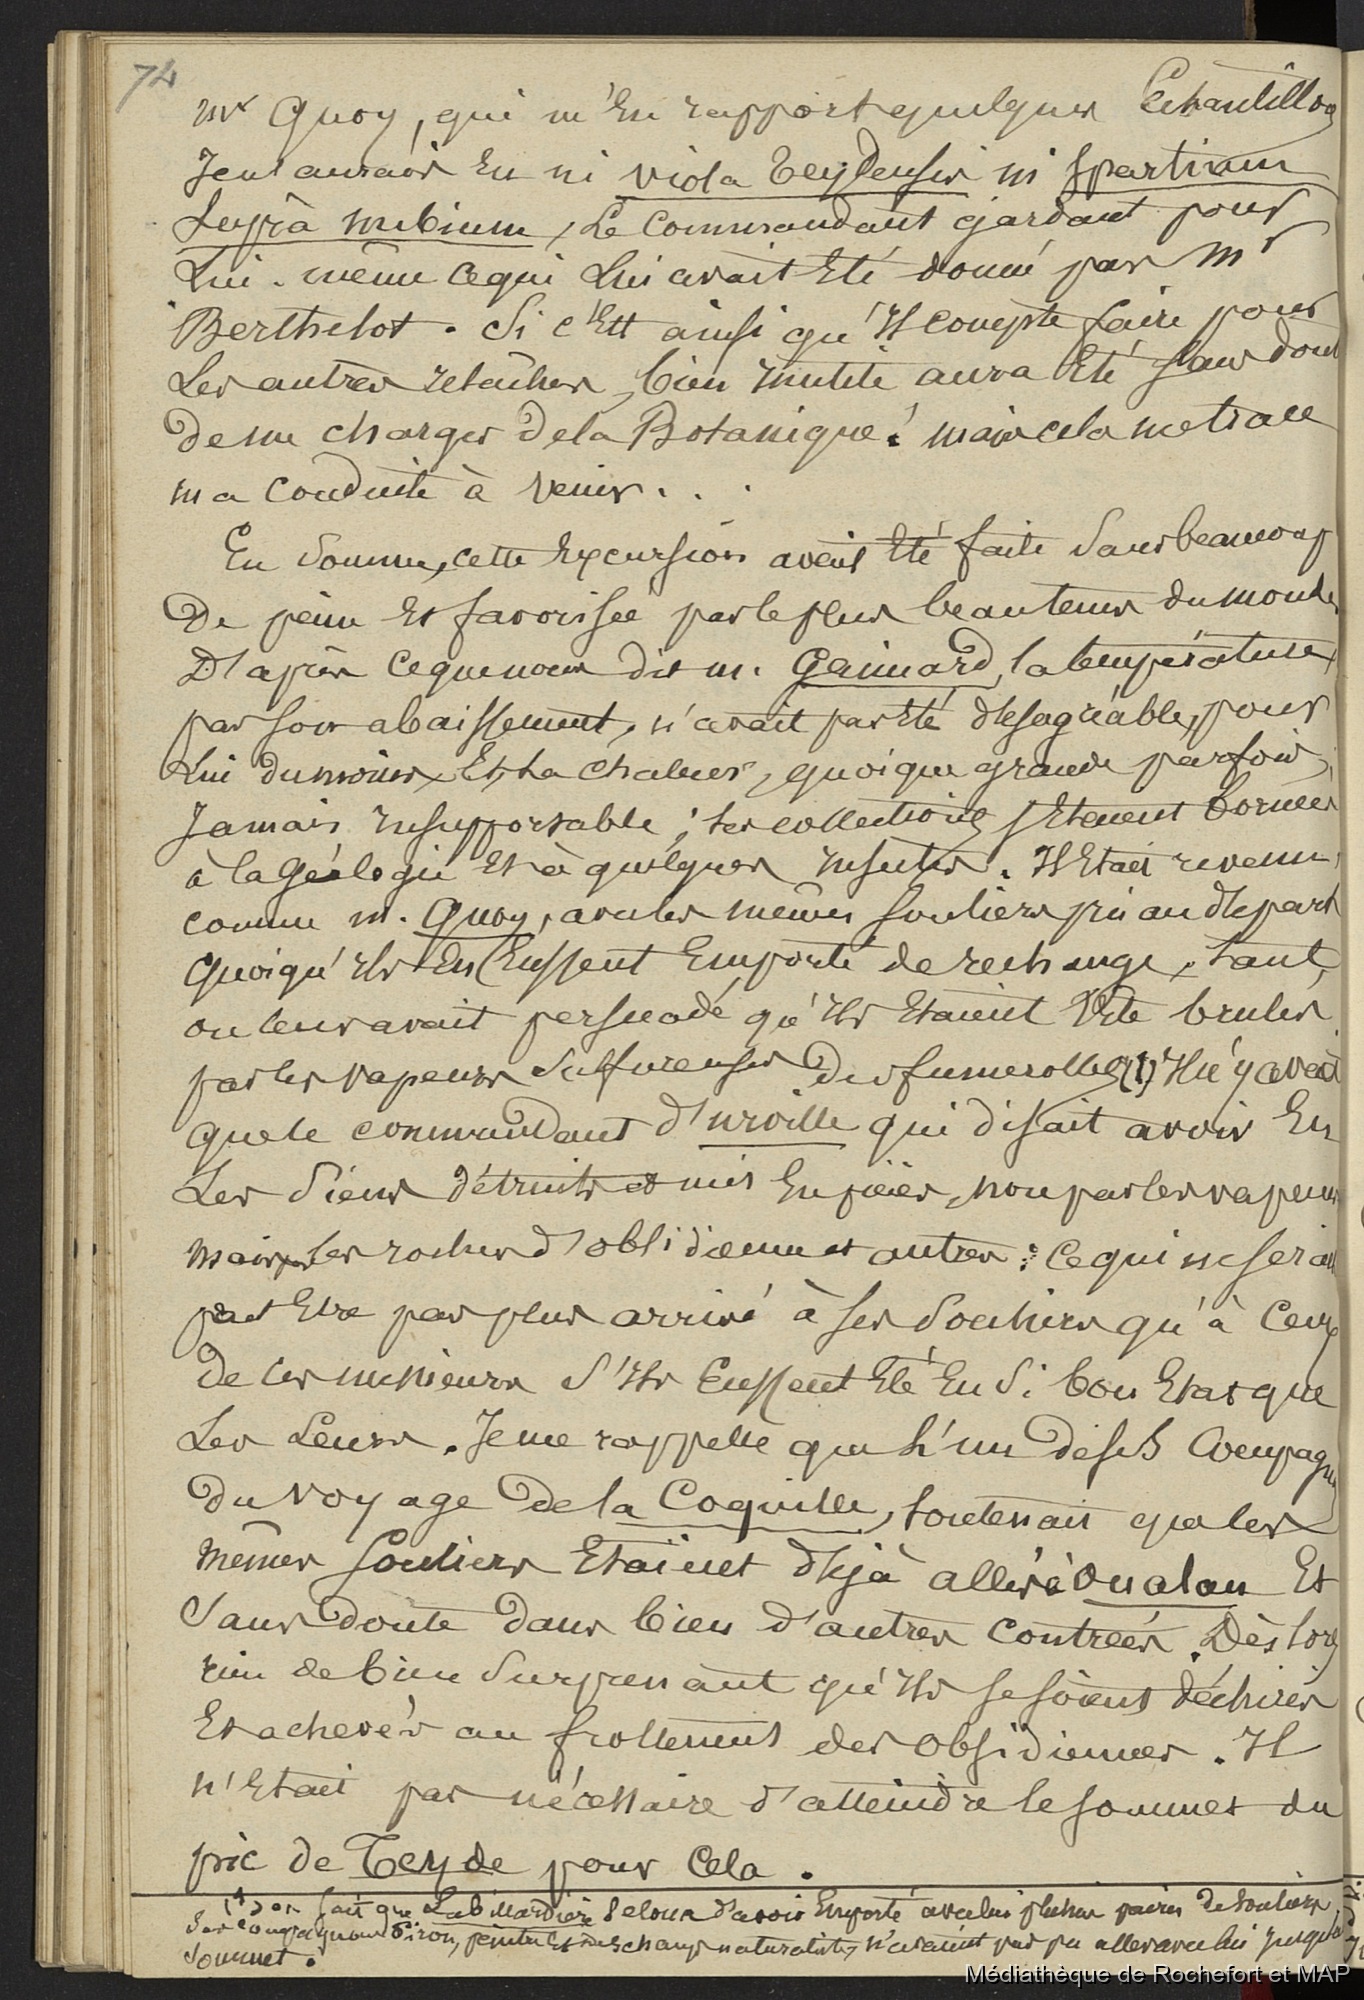 74
mr Quoy, qui m'En rapporta quelques Echantillons
Je n'aurais Eu ni viola Teydensis ni Spartium
Suprà nubium, Le Commandant gardant pour
Lui-même ce qui Lui avait Eté donné par Mr
Berthelot. Si c'Est ainsi qu'Il compte faire pour
Les autres relâches, bien inutile aura Eté sans doute
De me charger De la Botanique! mais cela me trace
ma Conduite à venir...
En Somme, cette Excursion avait Eté faite Sans beaucoup
De peine Et favorisée par le plus beau tems du monde.
D'après ce que nous dit m. Gaimard, la température,
par son abaissement, n'avait pas Eté désagréable, pour
Lui du moins, Et, La chaleur, quoique grande parfois,
Jamais insupportable; les collections s'Etaient bornées
à la Géologie Et à quelques insectes. Il Etait revenu,
comme m. Quoy, avec les mêmes souliers pris au départ
quoiqu'Ils En Eussent Emporté de rechange, tant
on leur avait persuadé qu'Ils Etaient Vite brulés
par les vapeurs sulfureuses Des fumerolles (1) Il n'y avait
que le commandant d'urville qui disait avoir Eu
Les Siens détruits et mis En pièces, non par les vapeurs
mais par les roches d'obsidienne et autres: ce qui ne serait
peut Etre pas plus arrivé à ses Souliers qu'à Ceux
De ces messieurs S'Ils Eussent Eté En Si bon Etat que
Les Leurs. Je me rappelle que L'un De ses Compagnons
Du Voyage De la Coquille, soutenait que les
mêmes souliers Etaient déjà allés à oualan Et
Sans Doute Dans bien d'autres contrées. Dès lors
rien de bien Surprenant qu'Ils se soient déchirés
Et achevés au frottement des obsidiennes. Il
n'Etait pas nécessaire d'atteindre le sommet du
pic de Teyde pour Cela.
(1) on sait que Labillardière se loua d'avoir Emporté avec lui plusieurs paires de souliers
Ses compagnons Piron, peintre Et Deschamps naturaliste, n'avaient pas pu aller avec lui jusqu'au
Sommet.
Médiathèque de Rochefort et MAP